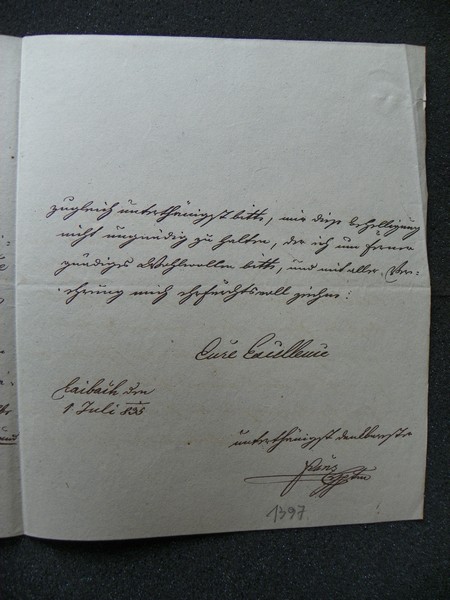 zugleich unterthänigst bitte, mir diese Behelligung
nicht ungnädig zu halten, der ich um ferner
gnädiges Wohlwollen bitte, und mit aller Ver-
ehrung mich ehrfurchtsvoll zeichne:
Eure Excellenz
Laibach den
1 Juli 835
unterthänigst
Franz
1397